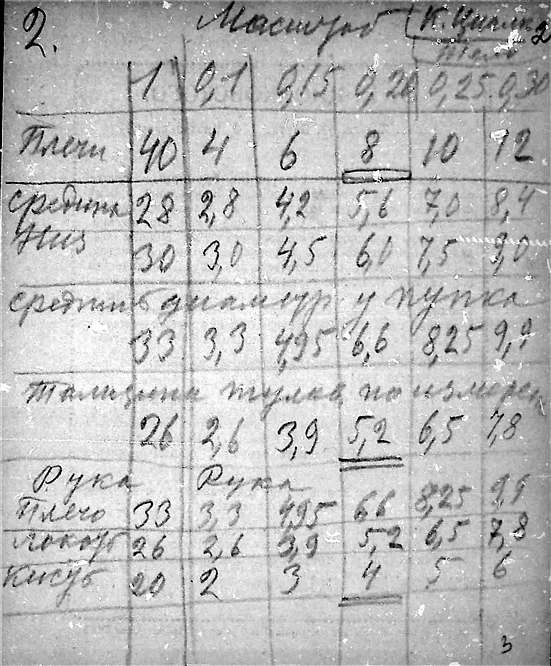 2. Масштаб К. Циолк 2
Тело
1 0,1 0,15 0,20 0,25 0,30
Плечи 40 4 6 8 10 12
средина 28 2,8 4,2 5,6 7,0 8,4
Низ 30 3,0 4,5 6,0 7,5 9,0
средний диаметр у пупка
33 3,3 4,95 6,6 8,25 9,9
Толщина тулов. по измерен
26 2,6 3,9 5,2 6,5 7,8
Рука Рука
Плечо 33 3,3 4,95 6,6 8,25 9,9
локоть 26 2,6 3,9 5,2 6,5 7,8
Кисть 20 2 3 4 5 6
3